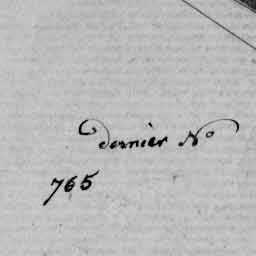 dernier No
765